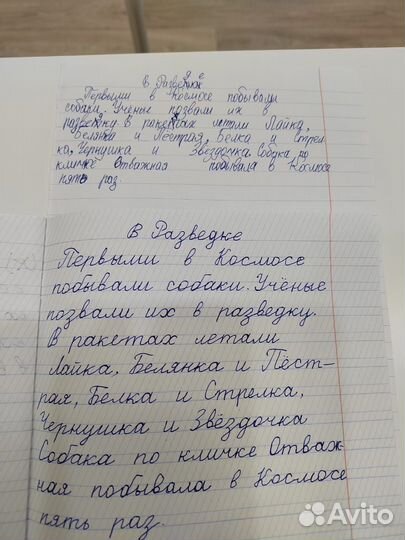 В Разведке
Первыми в Космосе побывали
собаки. Учёные позвали их в
разведку. В ракетах летали Лайка,
Белянка и Пёстрая, Белка и Стрел-
ка, Чернушка и Звёздочка. Собака по
кличке Отважная побывала в Космосе
пять раз.
В Разведке
Первыми в Космосе
побывали собаки. Учёные
позвали их в разведку.
В ракетах летали
Лайка, Белянка и Пёст-
рая, Белка и Стрелка,
Чернушка и Звёздочка
Собака по кличке Отваж-
ная побывала в Космосе
пять раз.
Avito